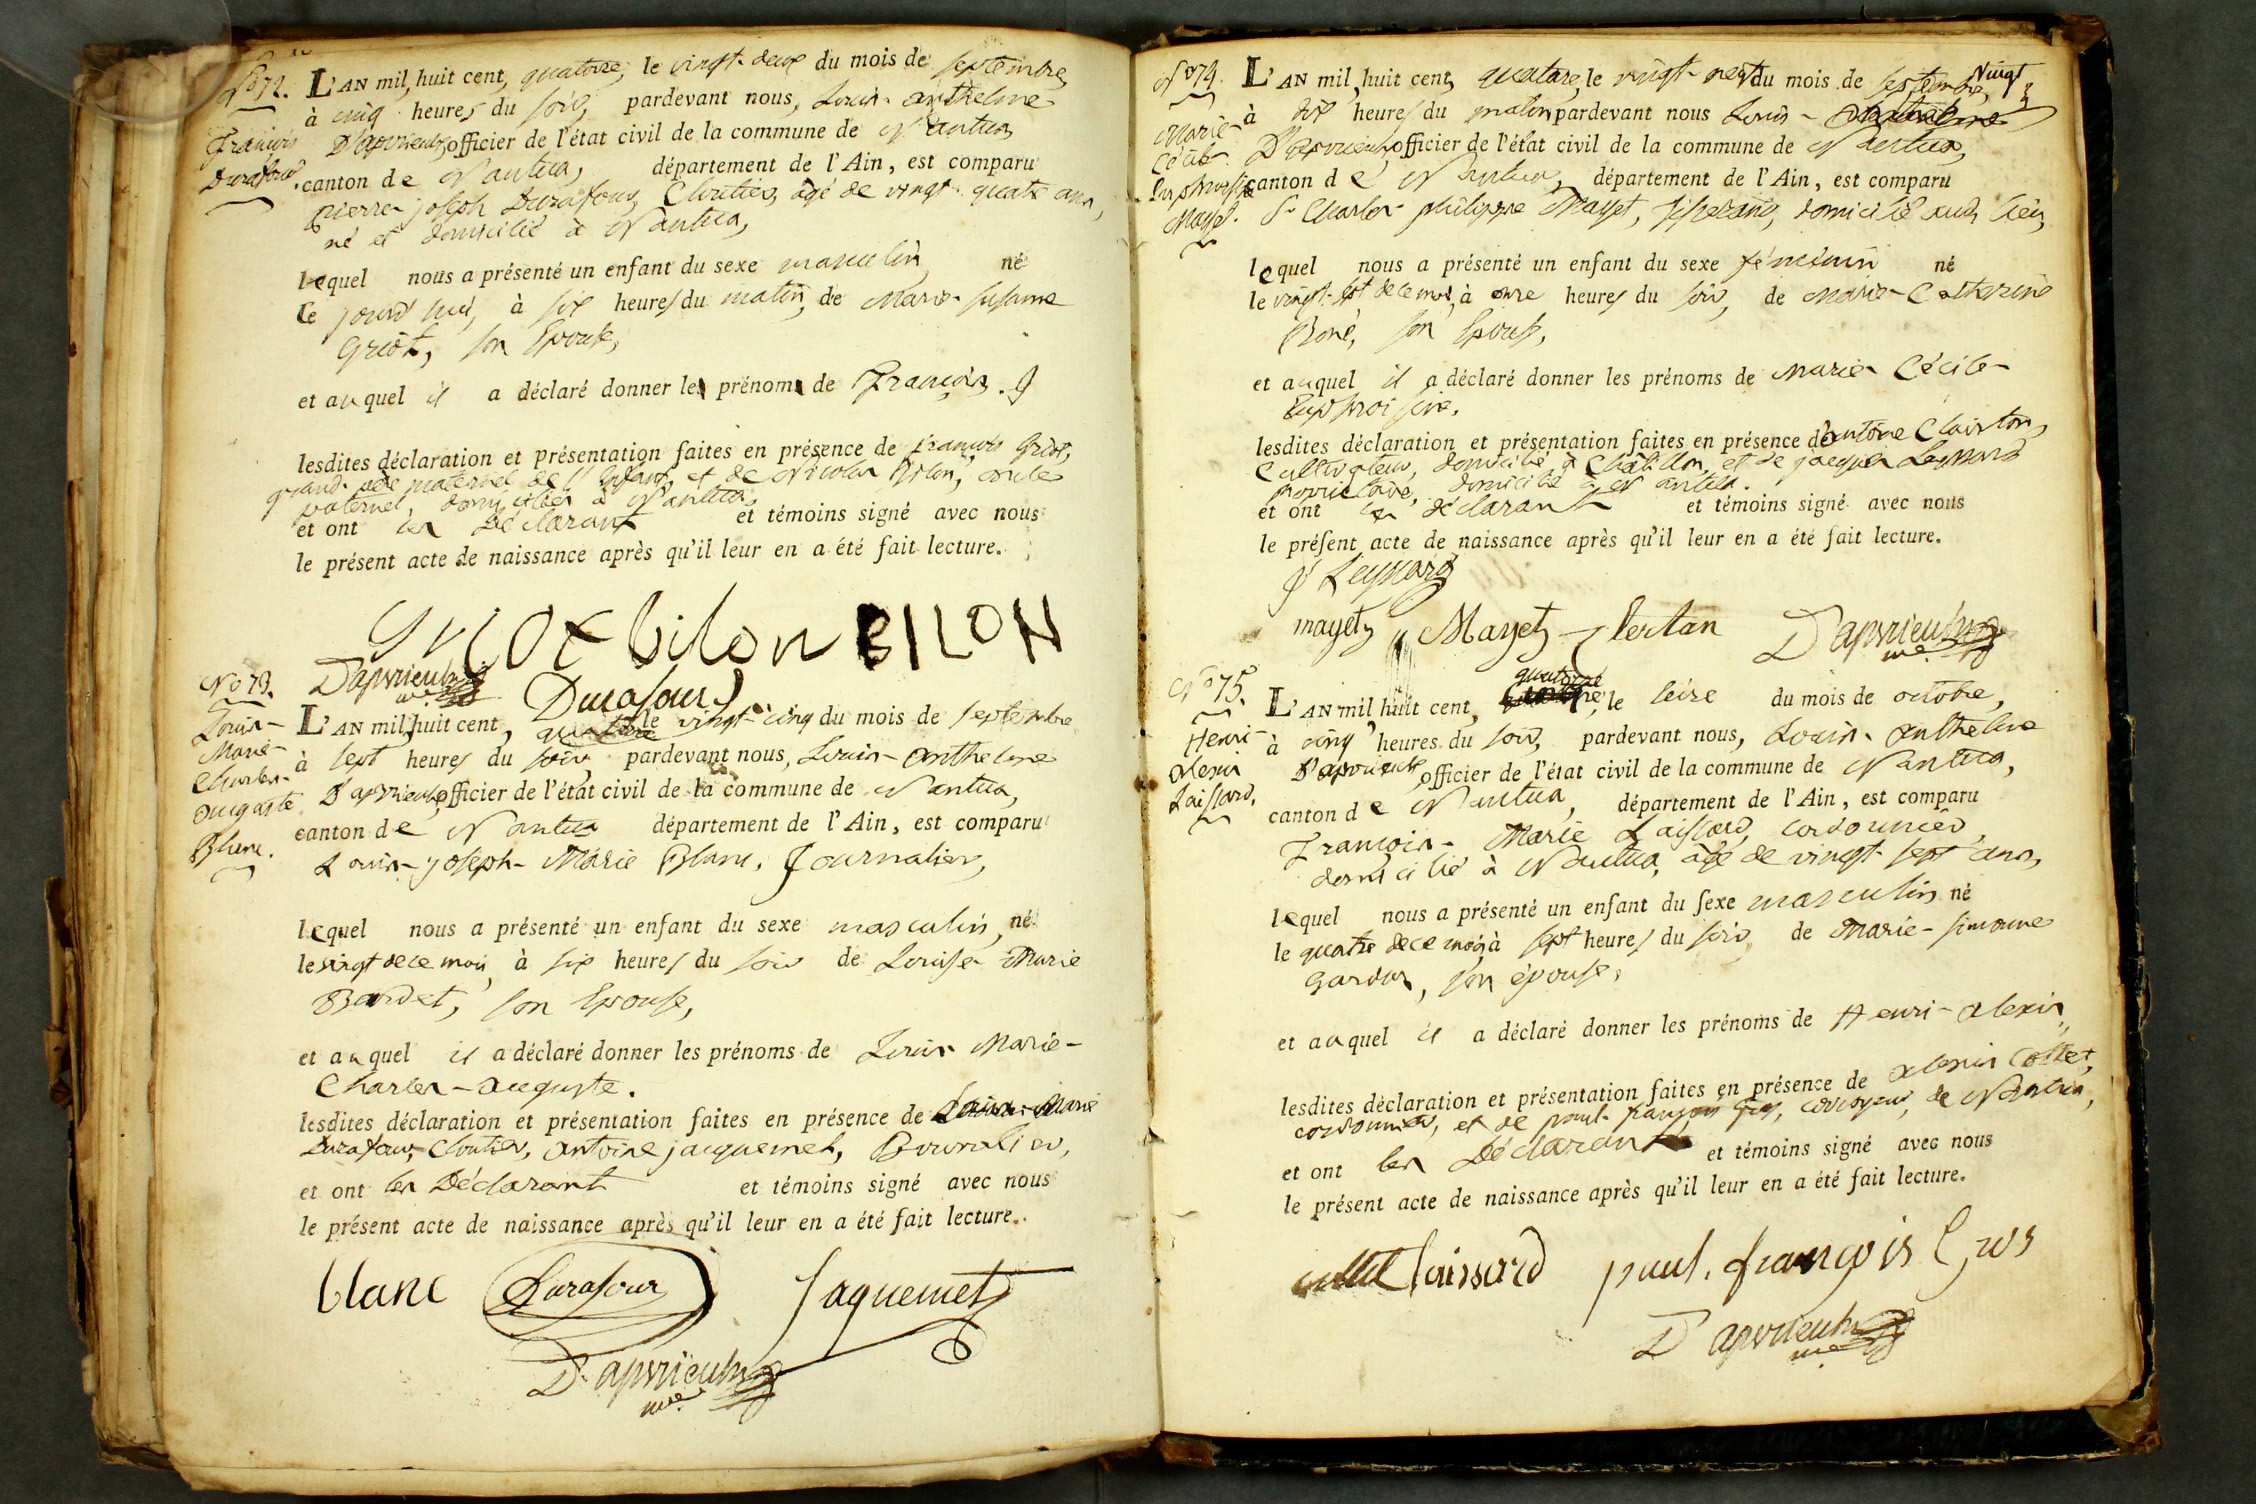 No 72.
François
Durafour.
L'AN mil huit cent quatorze, le vingt-deux du mois de septembre,
à cinq heures du soir, pardevant nous, Louis-anthelme
D'apvrieulx, officier de l'état civil de la commune de Nantua,
canton de Nantua, département de l'Ain, est comparu
pierre-joseph Durafour, Cloutier, âgé de vingt-quatre ans,
né et domicilié à Nantua,
lequel nous a présenté un enfant du sexe masculin né
le jourd'hui, à six heures du matin, de Marie-susanne
Griot, son Epouse,
et auquel il a déclaré donner le prénom de François.
lesdites déclaration et présentation faites en présence de francois Griot,
grand-père maternel de l'Enfant, et de Nicolas Bilon, oncle
paternel, domiciliés à Nantua,
et ont les Déclarant et témoins signé avec nous
le présent acte de naissance après qu'il leur en a été fait lecture.
griot bilon BILON
D'apvrieulx Durafour
No 73.
Louis-
Marie-
Charles-
auguste
Blanc.
L'AN mil huit cent, quatorze le vingt-cinq du mois de septembre
à sept heures du soir pardevant nous, Louis-anthelme
D'apvrieulx, officier de l'état civil de la commune de Nantua,
canton de Nantua département de l'Ain, est comparu
Louis-joseph-Marie Blanc, Journalier,
lequel nous a présenté un enfant du sexe masculin, né
le vingt de ce mois, à six heures du soir de Louise-Marie
Bardet, son Epouse,
et auquel il a déclaré donner les prénoms de Louis Marie-
Charles-auguste.
lesdites déclaration et présentation faites en présence de Louis-Marie
Durafour, Cloutier, antoine jacquemet, Bourrelier,
et ont les Déclarant et témoins signé avec nous
le présent acte de naissance après qu'il leur en a été fait lecture.
blanc Durafour Jaquemet
D'apvrieulx
me.
No 74.
Marie-
Cécile-
Euphrosine
Mayet.
L'AN mil huit cent quatorze, le vingt-neuf du mois de septembre, vingt
à dix heures du matin pardevant nous Louis-anthelme
D'apvrieulx, officier de l'état civil de la commune de Nantua,
canton de Nantua, département de l'Ain, est comparu
Sr Charles-philippe Mayet, domicilié aud. lieu,
lequel nous a présenté un enfant du sexe féminin né
le vingt-sept de ce mois, à onze heures du soir, de Marie-Catherine
Boné, son Epouse,
et auquel il a déclaré donner les prénoms de Marie-Cécile-
Euphrosine.
lesdites déclaration et présentation faites en présence d'antoine Clairton,
Cultivateur, domicilié à Châtillon, et de jacques Leymard
propriétaire, domicilié à Nantua.
et ont les déclarant et témoins signé avec nous
le présent acte de naissance après qu'il leur en a été fait lecture.
J Leymard
mayet Mayet D'apvrieulx
me.
No 75.
Henri-
alexis
Laissard.
L'AN mil huit cent, quatorze, le seize du mois de octobre,
à cinq heures du soir, pardevant nous, Louis-anthelme
D'apvrieulx, officier de l'état civil de la commune de Nantua,
canton de Nantua, département de l'Ain, est comparu
François-Marie Laissard, cordonnier,
domicilié à Nantua, âgé de vingt-sept ans,
lequel nous a présenté un enfant du sexe masculin né
le quatre de ce mois, à sept heures du soir, de Marie-simonne
Gardas, son épouse,
et auquel il a déclaré donner les prénoms de Henri-alexis,
lesdites déclaration et présentation faites en présence de alexis Collet,
cordonnier, et de paul françois Gros, corroyeur, de Nantua,
et ont les Déclarant et témoins signé avec nous
le présent acte de naissance après qu'il leur en a été fait lecture.
collet laissard paul. françois Gros
D'apvrieulx
me.